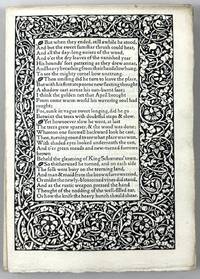 But when they ended, still awhile he stood,
And but the sweet familiar thrush could hear,
And all the day-long noises of the wood,
And o'er the dry leaves of the vanished year
His hounds' feet pattering as they drew anear,
And heavy breathing from their heads low hung,
To see the mighty cornel bow unstrung.
Then smiling did he turn to leave the place,
But with his first step some new fleeting thought
A shadow cast across his sun-burnt face;
I think the golden net that April brought
From some warm world his wavering soul had
caught;
For, sunk in vague sweet longing, did he go
Betwixt the trees with doubtful steps & slow.
Yet howsoever slow he went, at last
The trees grew sparser, & the wood was done;
Whereon one farewell backward look he cast,
Then, turning round to see what place was won,
With shaded eyes looked underneath the sun,
And o'er green meads and new-turned furrows
brown
Beheld the gleaming of King Schœneus' town.
So thitherward he turned, and on each side
The folk were busy on the teeming land,
And man & maid from the brown furrows cried,
Or midst the newly blossomed vines did stand,
And as the rustic weapon pressed the hand
Thought of the nodding of the well-filled ear,
Or how the knife the heavy bunch should shear.